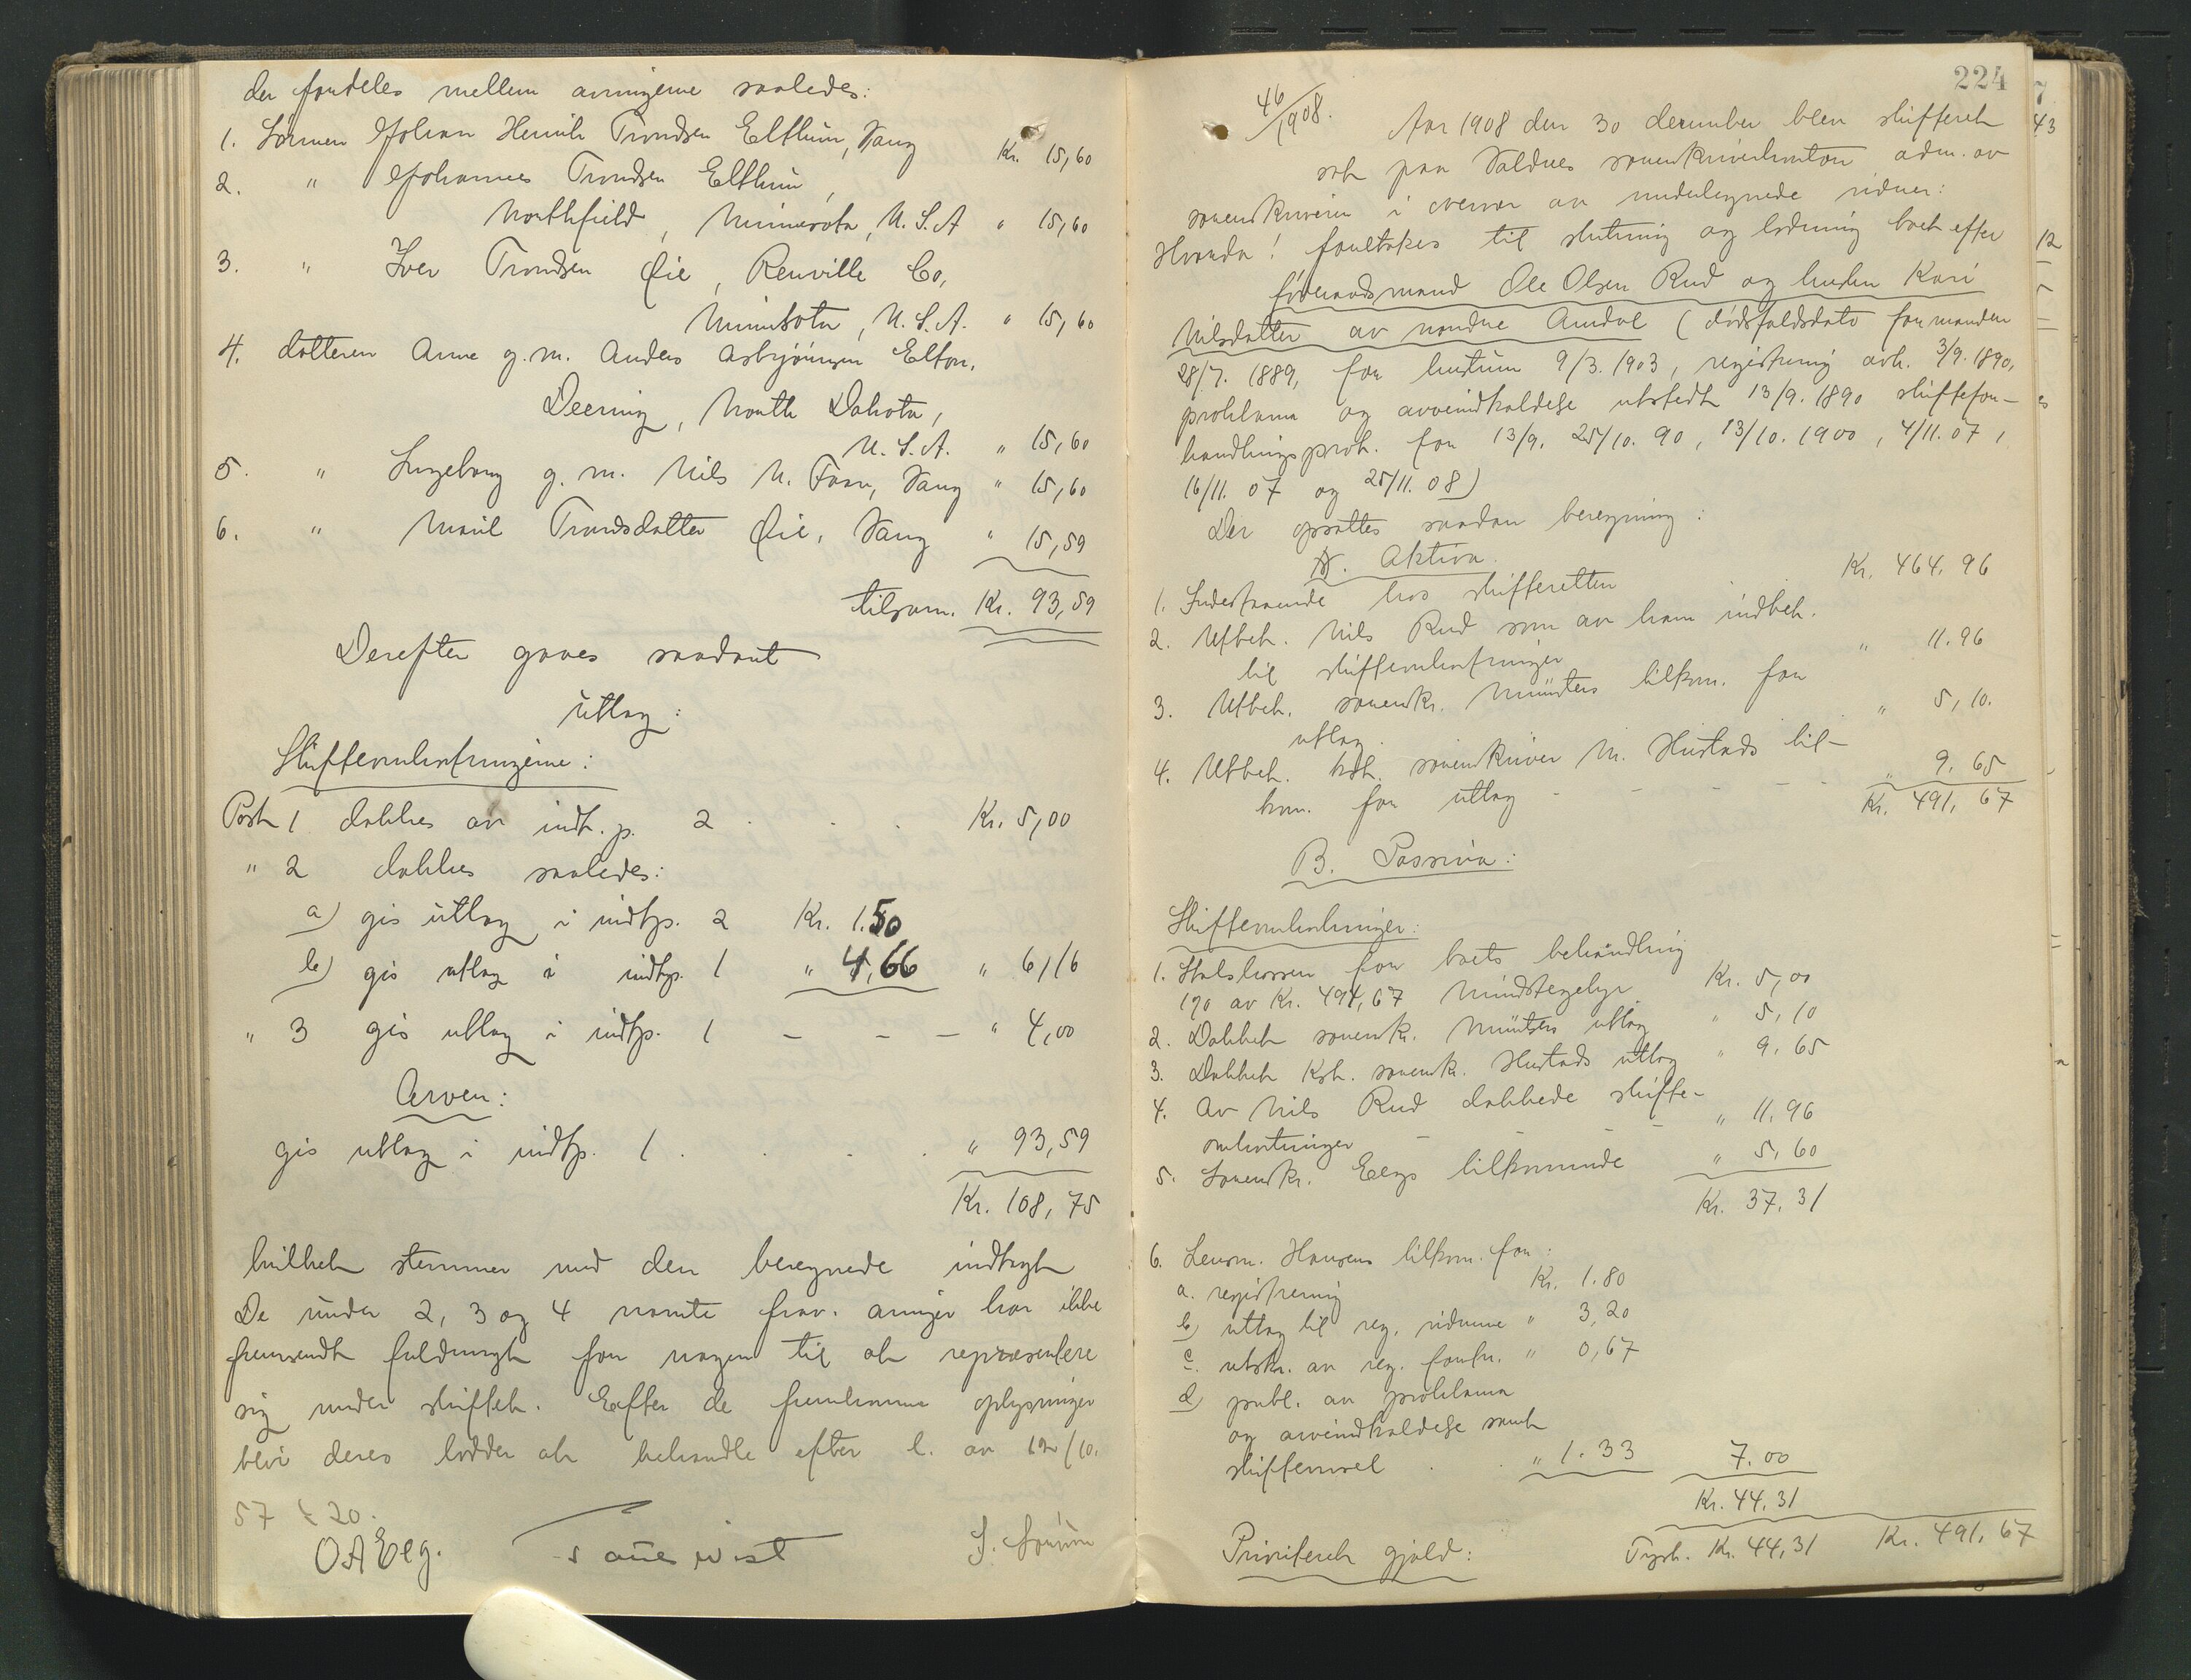 der fordeles mellem arvingerne saaledes:
1. Sønnen Johan Henrik Trondsen Elthun, Vang Kr. 15,60
2. " Johannes Trondsen Elthun,
Northfield, Minnesota, U.S.A " 15,60
3. " Iver Trondsen Øie, Renville Co,
Minnesota, U.S.A. " 15,60
4. datteren Anne g.m. Anders Asbjørnsen Elton,
Deering, North Dakota,
U.S.A. " 15,60
5. " Ingeborg g.m. Nils N. , Vang " 15,60
6. " Marit Trondsdatter Øie, Vang " 15,59
tilsam. Kr. 93,59
Derefter gaves saadant
utlæg:
Skifteomkostningerne:
Post 1 dækkes av indt.p. 2 . . . Kr. 5,00
" 2 dækkes saaledes:
a) gis utlæg i indtp. 2 Kr. 1.50
b) gis utlæg i indtp. 1 " 4,66 " 6,16
" 3 gis utlæg i indtp. 1 – – – " 4,00
Arven:
gis utlæg i indtp. 1 . . . . " 93,59
Kr. 108,75
hvilket stemmer med den beregnede indtægt
De under 2, 3 og 4 nævnte frav. arvinger har ikke
fremsendt fuldmagt for nogen til at repræsentere
sig under skiftet. Efter de fremkomne oplysninger
blir deres lodder at behandle efter l. av 12/10.
57 § 20.
OAEeg.
224
46/1908.
Aar 1908 den 30 december blev skifteret
sat paa Valdres sorenskriverkontor adm. av
sorenskriveren i overvær av undertegnede vidner:
Hvorda! foretokes til slutning og lodning boet efter
føderaadsmand Ole Olsen Rud og hustru Kari
Nilsdatter av nordre Aurdal (dødsfaldsdato for manden
28/7. 1889, for hustruen 9/3. 1903, registrering avh. 3/9. 1890,
proklama og arveindkaldelse utstedt 13/9. 1890 skiftefor-
handlingsprot. for 13/9. 25/10. 90, 13/10. 1900, 4/11. 07,
16/11. 07 og 25/11. 08)
Der opsattes saadan beregning:
A. Aktiva.
1. Indestaaende hos skifteretten Kr. 464.96
2. Utbet. Nils Rud som av ham indbet.
til skifteomkostninger " 11.96
3. Utbet. sorenskr. Münsters tilkom. for
utlæg. " 5,10.
4. Utbet. kst. sorenskriver M. Hustads til-
kom. for utlæg – – – – " 9.65
Kr. 491,67
B. Passiva:
Skifteomkostninger:
1. Statskassen for boets behandling
1% av Kr. 491,67 Mindstegebyr Kr. 5,00
2. Dækket sorensk. Münsters utlæg " 5,10
3. Dækket Kst. sorensk. Hustads utlæg " 9.65
4. Av Nils Rud dækkede skifte-
omkostninger – – – – " 11.96
5. Sorenskr. Eegs tilkommende " 5,60
Kr. 37.31
6. Lensm. Hansens tilkom. for:
a. registrering Kr. 1.80
b) utlæg til reg. vidnerne " 3,20
c. utskr. av reg. forretn. " 0,67
d) publ. av proklama
og arveindkaldelse samt
skiftevarsel . . " 1.33 7.00
Kr. 44.31
Prioritert gjæld: Trsp. Kr. 44,31 Kr. 491,67